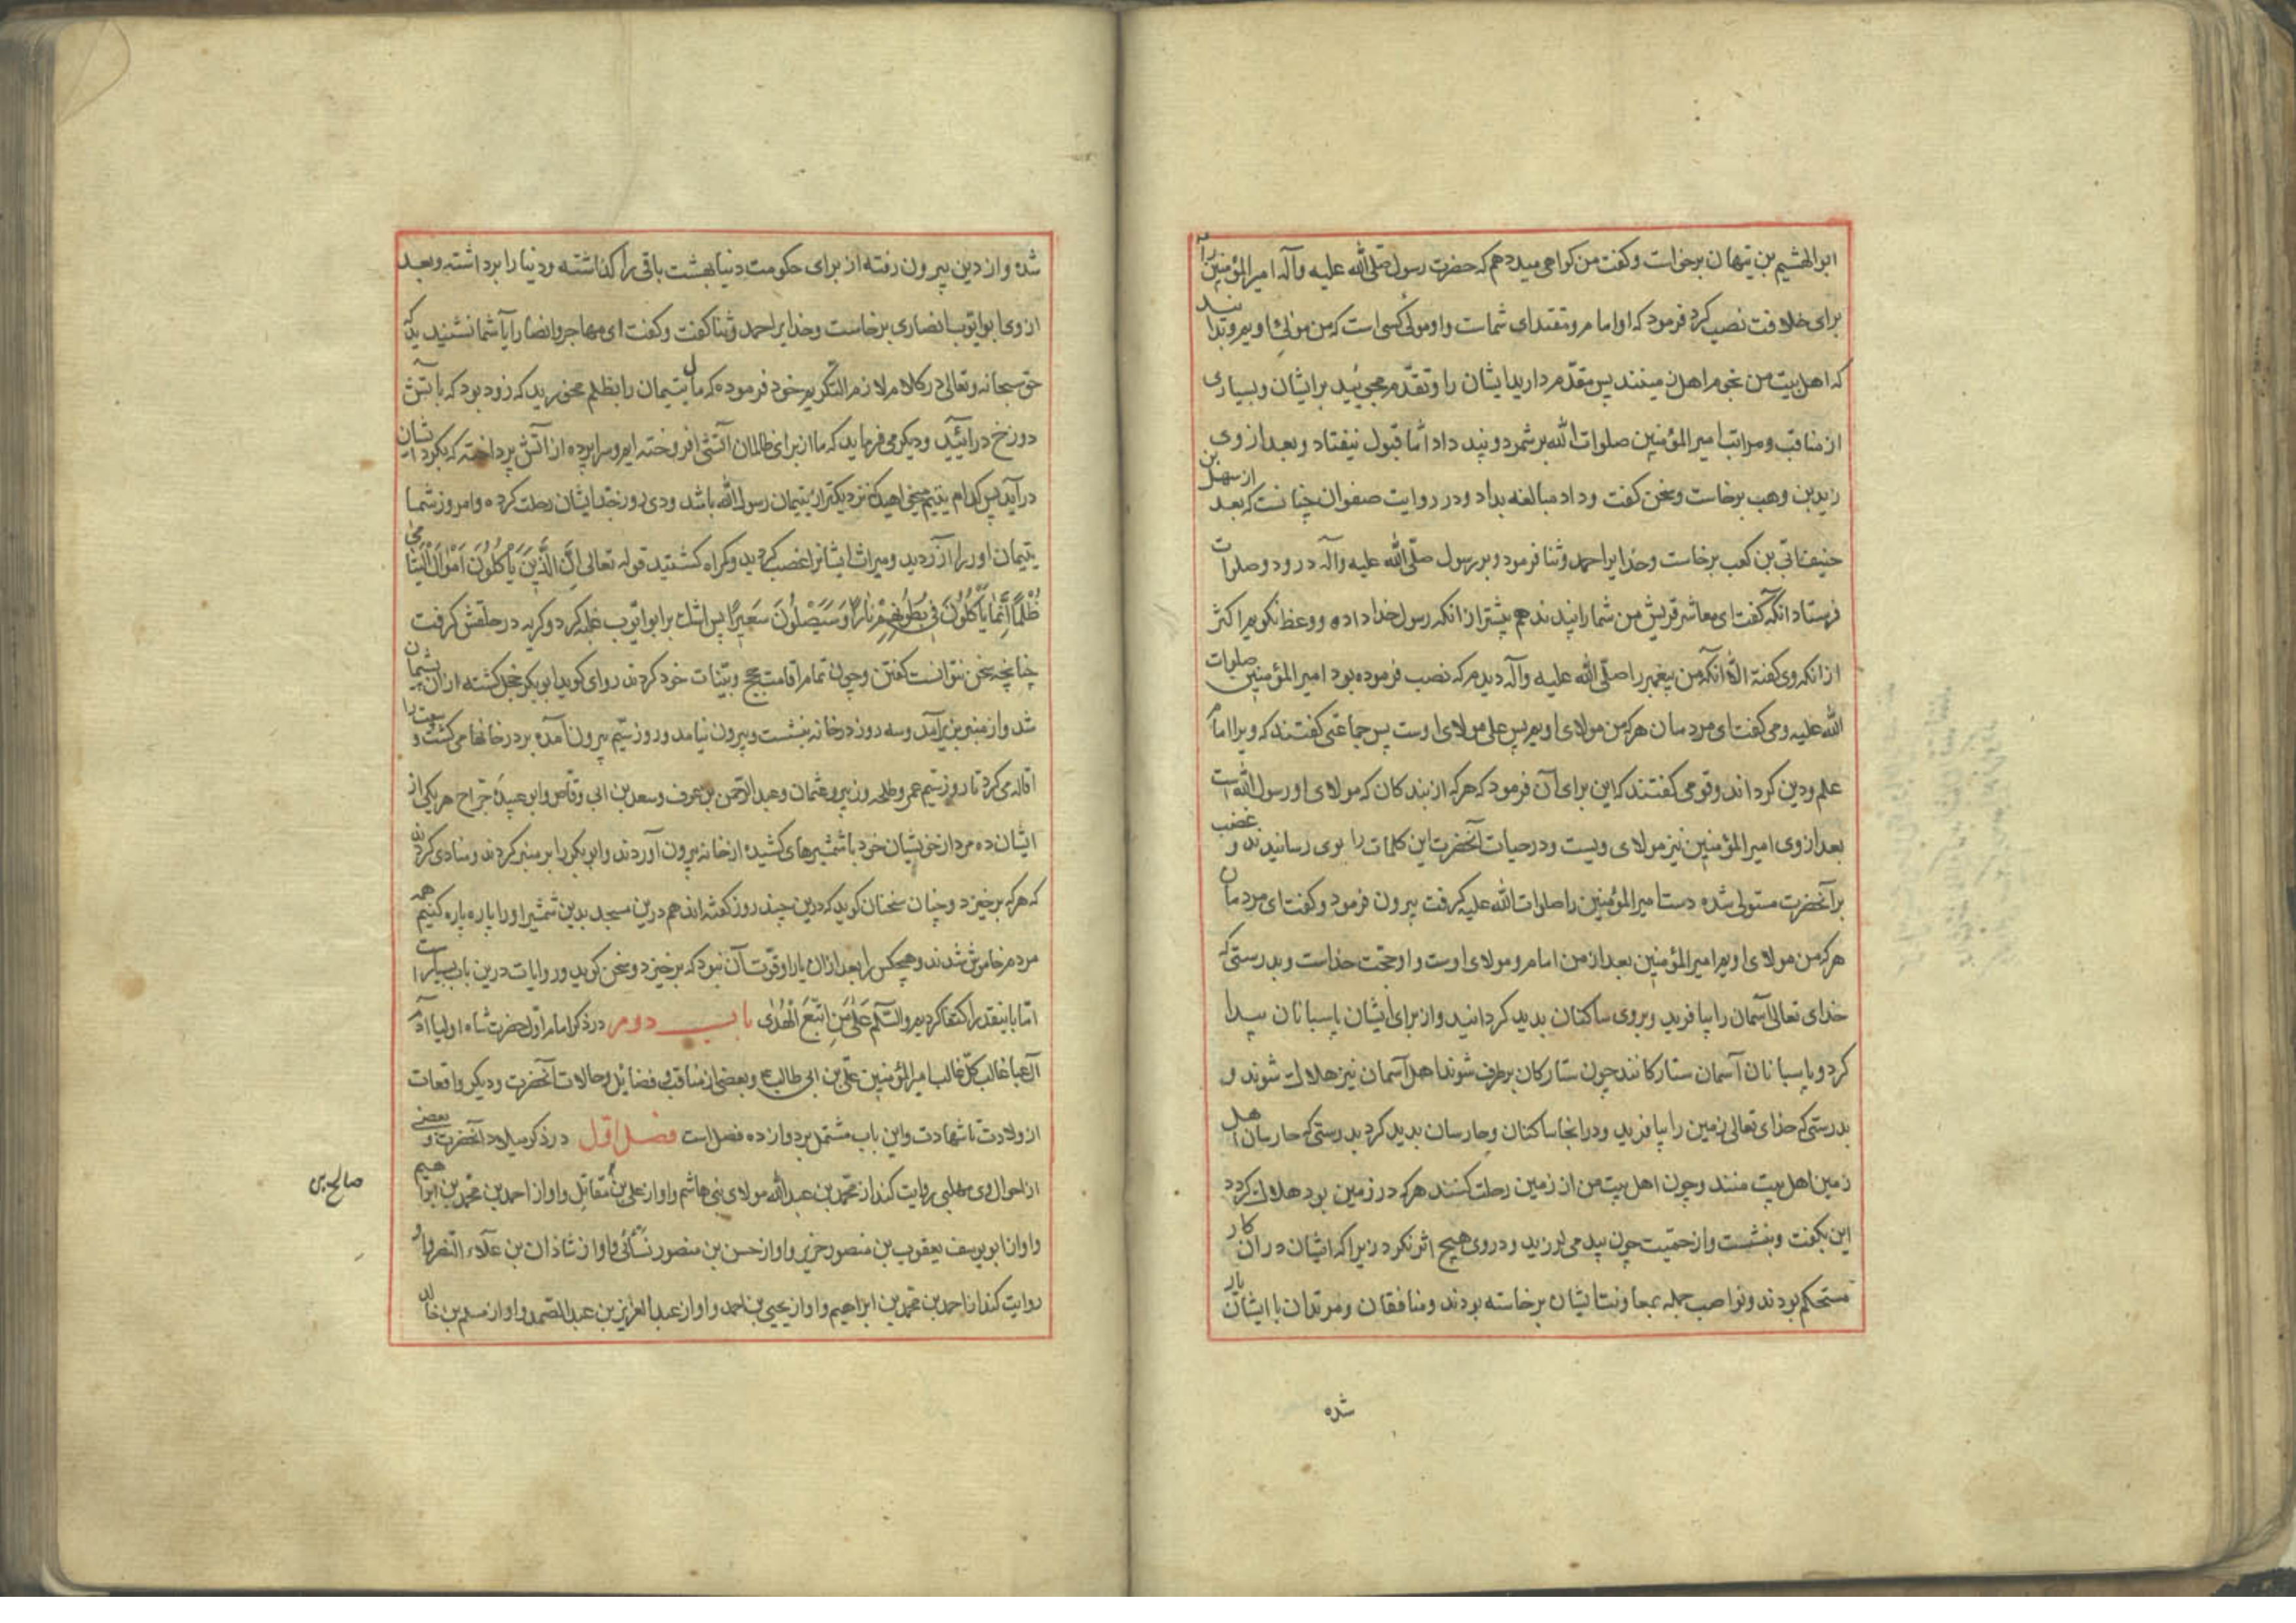 ابوالهشیم بن تیهان برخاست و کفت من کواهی میدهم که حضرت رسول صلّی الله علیه وآله امیرالمؤمنین را
برای خلافت نصب کرد فرمود که او امام و مقتدای شماست و او مولی کسی است که من مولیٔ اویم و بدانید
که اهل بیت من نجوم اهل زمینند پس مقدّم دارید ایشان را و تقدّم مجویید بر ایشان و بسیاری
از مناقب و مراتب امیرالمؤمنین صلوات الله بر شمرد و پند داد امّا قبول نیفتاد و بعد از وی
زیدبن وهب برخاست و سخن کفت و داد مبالغه بداد و در روایت صفوان چنانست که بعد از سهل بن
حنیف ابّی بن کعب برخاست و خدایرا حمد و ثنا فرمود و بر رسول صلّی الله علیه وآله درود و صلوات
فرستاد آنکه کفت ای معاشر قریش من شما را پند ندهم بیشتر از انکه رسول خدا داده و وعظ نکویم اکثر
از انکه وی کفته الّا آنکه من پیغمبر را صلّی الله علیه وآله دیدم که نصب فرموده بود امیرالمؤمنین صلوات
الله علیه و می کفت ای مردمان هرکه من مولای اویم پس علی مولای اوست پس جماعتی کفتند که ویرا امام
علم و دین کرد اند و قومی کفتند که این برای آن فرمود که هرکه از بندکان که مولای او رسول الله است
بعد از وی امیرالمؤمنین نیز مولای ویست و در حیات آنحضرت این کلمات را بوی رسانیدند و غضب
بر آنحضرت مستولی شده دست امیرالمؤمنین را صلوات الله علیه کرفت بیرون فرمود و کفت ای مردمان
هرکه من مولای اویم امیرالمؤمنین بعد از من امام و مولای اوست و او حجّت خداست و بدرستی که
خدای تعالی آسمان را بیافرید و بروی ساکنان بدید کردانید و از برای ایشان پاسبانان پیدا
کرد و پاسبانان آسمان ستارکانند چون ستارکان برطرف شوند اهل آسمان نیز هلاک شوند و
بدرستی که خدای تعالی زمین را بیافرید و در انجا ساکنان و حارسان بدید کرد بدرستی که حارسان اهل
زمین اهل بیت منند و چون اهل بیت من از زمین رحلت کنند هرکه در زمین بود هلاک کردد
این بکفت و بنشست و از حمیّت چون بید می لرزید و در وی هیچ اثر نکرد زیرا که ایشان در ان کار
مستحکم بودند و نواصب جمله بمعاونت ایشان برخاسته بودند و منافقان و مرتدان با ایشان یار
شده
شده و از دین بیرون رفته از برای حکومت دنیا بهشت باقی را کذاشته و دنیا را برداشته و بعد
از وی ابوایّوب انصاری برخاست و خدایرا حمد و ثنا کفت و کفت ای مهاجر و انصار آیا شما نشنیدید که
حق سبحانه و تعالی در کلام لازم التکریم خود فرموده که مال یتیمان را بظلم مخورید که زود بود که بآتش
دوزخ درآئید و دیکر می فرماید که ما از برای ظالمان آتشی افروخته ایم و سراپرده از آتش پرداخته که بکرد ایشان
درآید پس کدام یتیم میخواهید که نزدیکتر از یتیمان رسول الله باشد و دی روز جدّ ایشان رحلت کرده و امروز شما
یتیمان او را آزردید و میراث ایشانرا غصب کردید و کمراه کشتید قوله تعالی انّ الذین یأکلون اموال الیتامی
ظلماً انّما یأکلون فی بطونهم ناراً و سیصلون سعیراً پس اشک بر ابوایّوب غلبه کرد و کریه در حلقش کرفت
چنانچه سخن نتوانست کفتن و چون تمام اقامت حجج و بیّنات خود کردند راوی کوید ابوبکر خجل کشته از ان پشیمان
شد و از منبر بزیر آمد و سه روز در خانه بنشست و بیرون نیامد و روز سیّم بیرون آمده بر در خانها می کشت و بیعت را
اقاله می کرد تا روز سیّم عمر و طلحه و زبیر و عثمان و عبدالرحمن بن عوف و سعد بن ابی وقّاص و ابوعبیدهٔ جرّاح هر یکی از
ایشان ده مرد از خویشان خود با شمشیرهای کشیده از خانه بیرون آوردند و ابوبکر را بر منبر کردند و منادی کردند
که هرکه برخیزد و چنان سخنان کوید که درین چند روز کفته اند هم درین مسجد بدین شمشیر او را پاره پاره کنیم همه
مردم خاموش شدند و هیچکس را بعد از ان یارا و قوّت آن نبود که برخیزد و سخن کوید و روایات درین باب بسیار است
امّا باینقدر اکتفا کردیم والسّلام علی من اتّبع الهدی باب دوم در ذکر امام اوّل حضرت شاه اولیا ادم
آل عبا غالب کلّ غالب امیرالمؤمنین علیّ بن ابی طالب ع و بعضی از مناقب و فضایل و حالات آنحضرت و دیکر واقعات
از ولادت تا شهادت و این باب مشتمل بر دوازده فصل است فصل اوّل در ذکر میلاد آنحضرت و بعضی
از احوال وی مهلبی روایت کند از محمّد بن عبدالله مولای بنی هاشم و او از علی بن مقاتل و او از احمد بن محمّد بن ابراهیم
و او از ابو یوسف یعقوب بن منصور و او از حسن بن منصور و او از شاذان بن علاء
روایت کند از احمد بن محمّد بن ابراهیم و او از یحیی بن احمد و او از عبدالعزیز بن عبدالصّمد و او از مسلم بن خالد